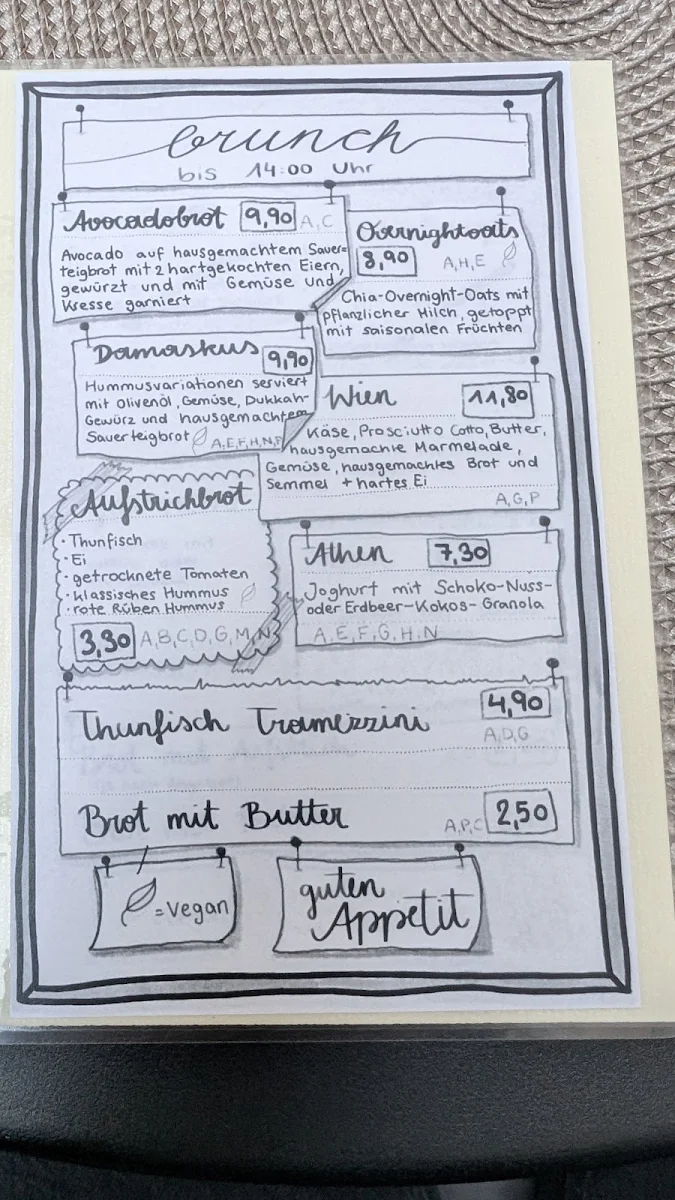 brunch
bis 14:00 Uhr
Avocadobrot 9,90 A,C
Avocado auf hausgemachtem Sauer=
teigbrot mit 2 hartgekochten Eiern,
gewürzt und mit Gemüse und
Kresse garniert
Overnightoats
8,90 A,H,E
Chia-Overnight-Oats mit
pflanzlicher Milch, getoppt
mit saisonalen Früchten
Damaskus 9,90
Hummusvariationen serviert
mit Olivenöl, Gemüse, Dukkah-
Gewürz und hausgemachtem
Sauerteigbrot A,E,F,H,N,P
Wien 11,80
Käse, Prosciutto Cotto, Butter,
hausgemachte Marmelade,
Gemüse, hausgemachtes Brot und
Semmel + hartes Ei
A,G,P
Aufstrichbrot
· Thunfisch
· Ei
· getrocknete Tomaten
· klassisches Hummus
· rote Rüben Hummus
3,30 A,B,C,D,G,M,N
Athen 7,30
Joghurt mit Schoko-Nuss-
oder Erdbeer-Kokos-Granola
A,E,F,G,H,N
Thunfisch Tramezzini 4,90
A,D,G
Brot mit Butter A,P,C 2,50
=vegan
guten
Appetit